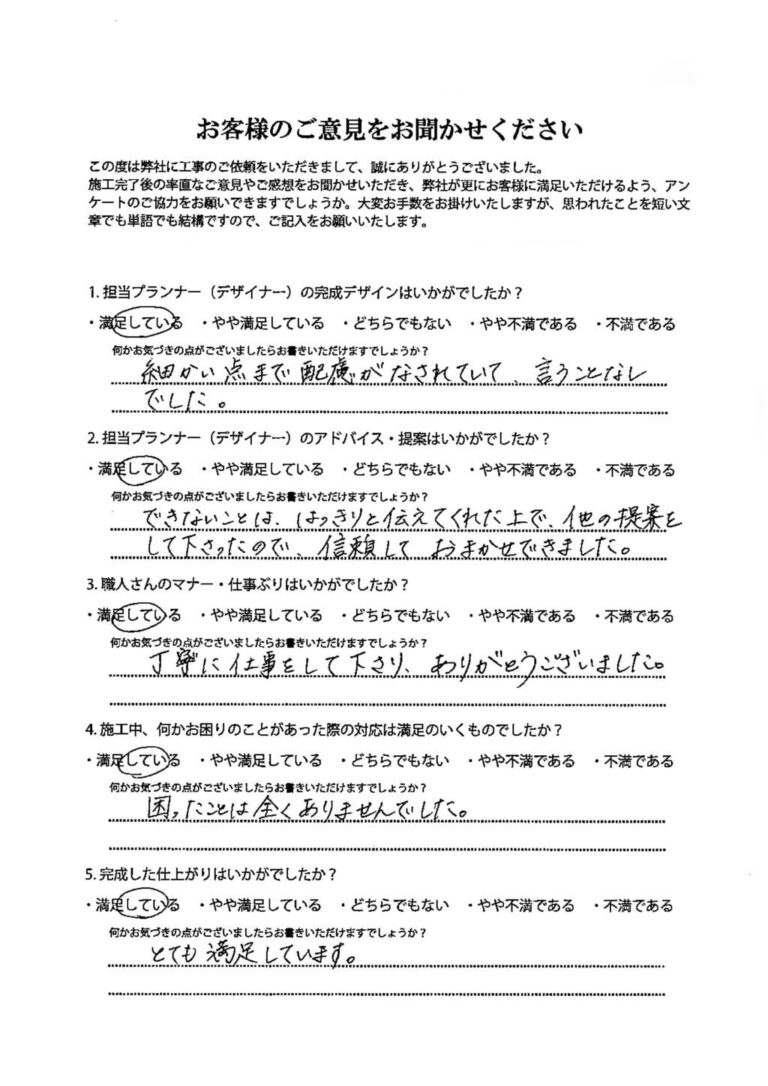 お客様のご意見をお聞かせください
この度は弊社に工事のご依頼をいただきまして、誠にありがとうございました。
施工完了後の率直なご意見やご感想をお聞かせいただき、弊社が更にお客様に満足いただけるよう、アン
ケートのご協力をお願いできますでしょうか。大変お手数をお掛けいたしますが、思われたことを短い文
章でも単語でも結構ですので、ご記入をお願いいたします。
1. 担当プランナー（デザイナー）の完成デザインはいかがでしたか？
・満足している ・やや満足している ・どちらでもない ・やや不満である ・不満である
何かお気づきの点がございましたらお書きいただけますでしょうか？
細かい点まで配慮がなされていて、言うことなし
でした。
2. 担当プランナー（デザイナー）のアドバイス・提案はいかがでしたか？
・満足している ・やや満足している ・どちらでもない ・やや不満である ・不満である
何かお気づきの点がございましたらお書きいただけますでしょうか？
できないことは、はっきりと伝えてくれた上で、他の提案を
して下さったので、信頼して おまかせできました。
3. 職人さんのマナー・仕事ぶりはいかがでしたか？
・満足している ・やや満足している ・どちらでもない ・やや不満である ・不満である
何かお気づきの点がございましたらお書きいただけますでしょうか？
丁寧に仕事をして下さり、ありがとうございました。
4. 施工中、何かお困りのことがあった際の対応は満足のいくものでしたか？
・満足している ・やや満足している ・どちらでもない ・やや不満である ・不満である
何かお気づきの点がございましたらお書きいただけますでしょうか？
困ったことは全くありませんでした。
5. 完成した仕上がりはいかがでしたか？
・満足している ・やや満足している ・どちらでもない ・やや不満である ・不満である
何かお気づきの点がございましたらお書きいただけますでしょうか？
とても満足しています。